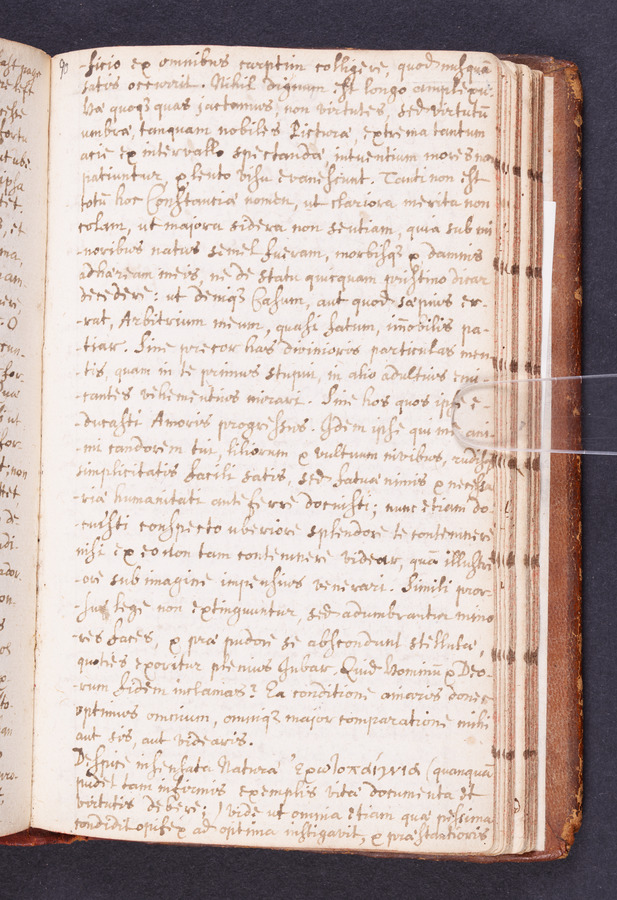 90
-ficio ex omnibus carptim colligere, quod nusquā
satis occurrit. Nihil dignum est longo amplexu.
Hæ quoq; quas jactamus, non virtutes, sed virtutū
umbræ, tanquam nobiles Picturæ, extrema tantum
acie ex intervallo spectandæ, intuentium mores non
patiuntur, & lento visu evanescunt. Tanti non est
totū hoc Constantiæ nomen, ut clariora merita non
colam, ut majora sidera non sentiam, quia sub mi
-noribus natus semel fueram, morbisq; & damnis
adhæream meis, ne de statu quicquam pristino dicar
decedere: ut deniq; Casum, aut quod sæpius er-
-rat, Arbitrium meum, quasi fatum, immobilis pa-
-tiar. Sine precor has divinioris particulas men
-tis, quam in te primus stupui, in alio adultius
-cantes vehementius mirari. Sine hos quos ipse e-
-ducasti Amoris progressus. Idem ipse qui me ani-
-mi candorem tui, liliorum & vultuum nivibus, rudis
simplicitatis facili satis, sed fatuæ nimis &
-riæ humanitati anteferre docuisti; nunc etiam do-
-cuisti conspecto uberiore splendore te contemnere
nisi ex eo non tam contemnere videar, quā illustri
-ore sub imagine impensius venerari. Simili pror-
-sus lege non extinguuntur, sed adumbrantur mino
-res faces, & præ pudore se abscondunt stellulæ,
quoties exoritur plenius Jubar. Quid hominū & Deo-
-rum fidem inclamas? Ea conditione amaris donec
optimus omnium, omniq; major comparatione mihi
aut sis, aut videaris.
Despice insensata Natura Ἐρωτοπαίγνια (quanquā
pudet tam informis exemplis vitæ documenta et
virtutis debere:) vide ut omnia etiam quæ pessima
condidit opifex ad optima instigavit, & præstantioris